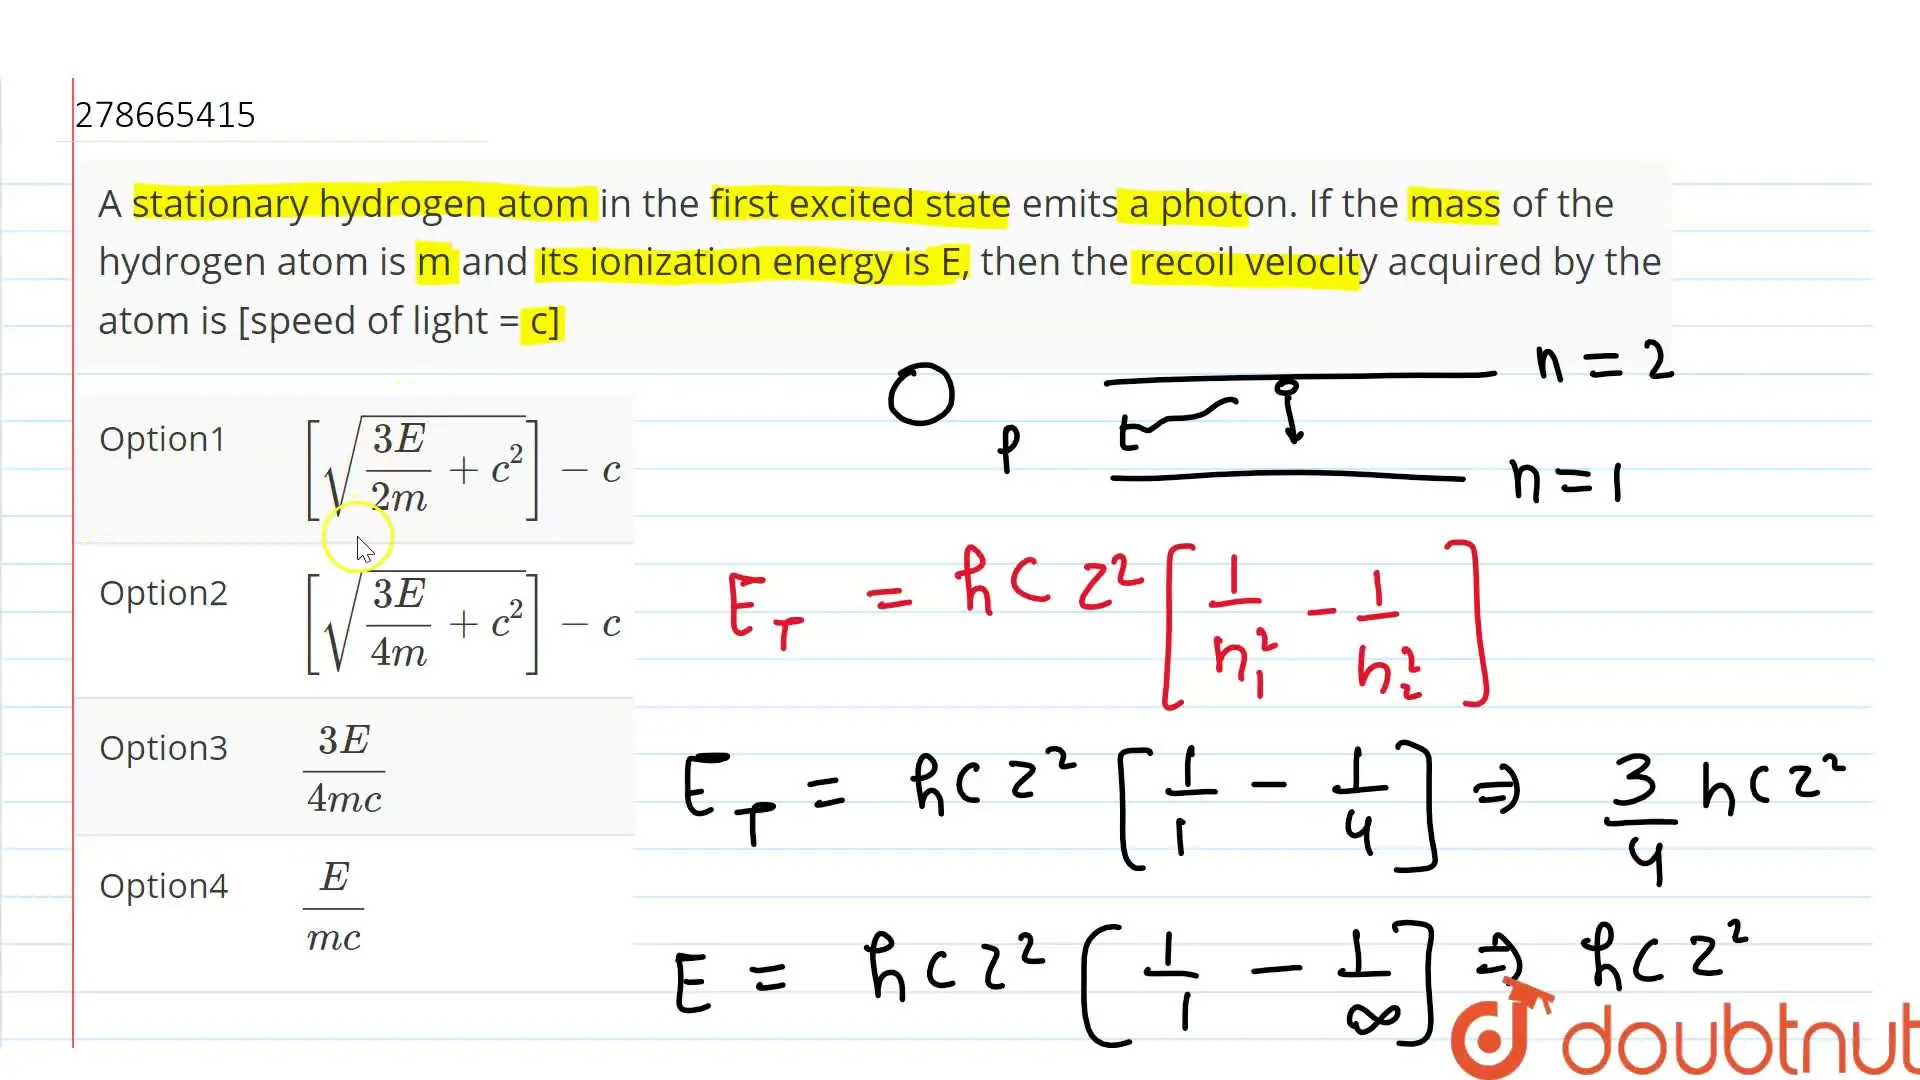 278665415
A stationary hydrogen atom in the first excited state emits a photon. If the mass of the
hydrogen atom is m and its ionization energy is E, then the recoil velocity acquired by the
atom is [speed of light = c]
n = 2
Option1 [√(3E/2m + c²)] − c
p
n = 1
Option2 [√(3E/4m + c²)] − c
E_T = hcz² [1/n₁² − 1/n₂²]
Option3 3E/4mc
E_T = hcz² [1/1 − 1/4] ⇒ 3/4 hcz²
Option4 E/mc
E = hcz² [1/1 − 1/∞] ⇒ hcz²
doubtnut